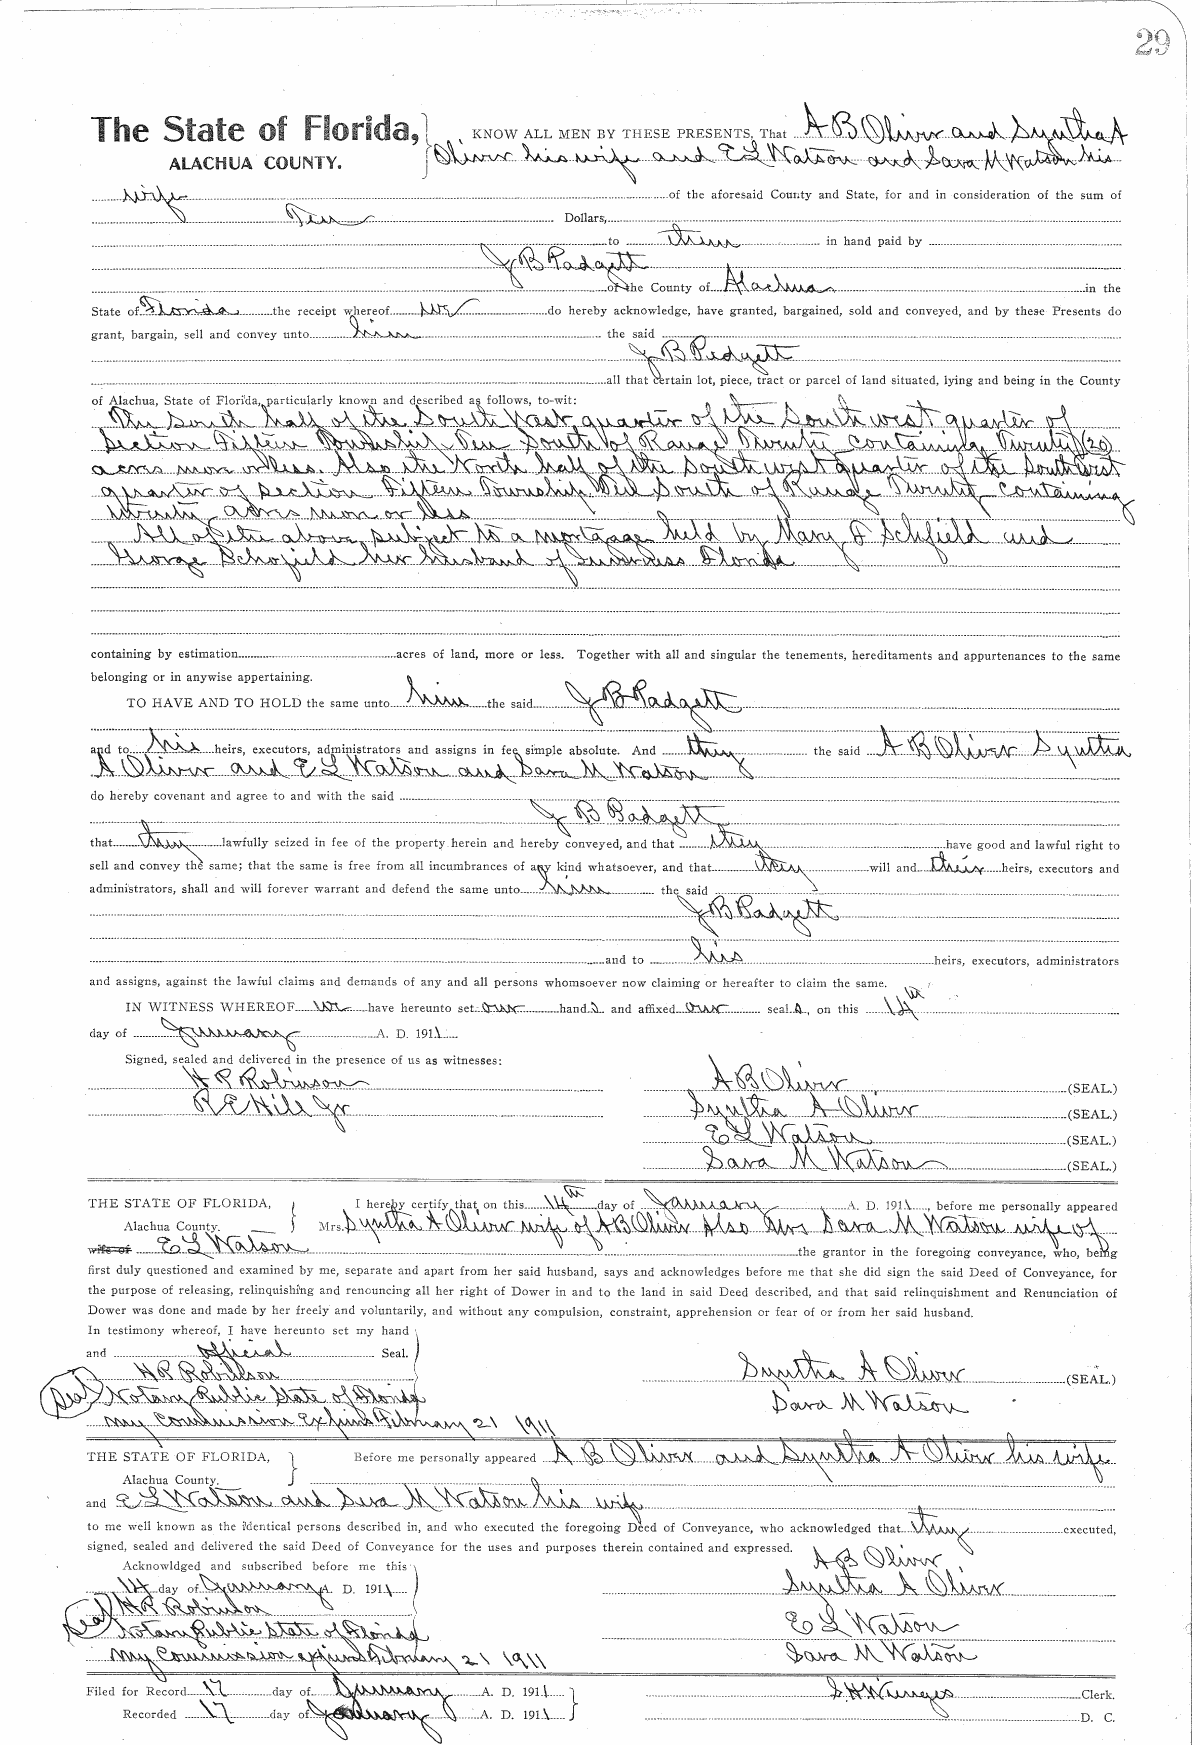 29
The State of Florida, KNOW ALL MEN BY THESE PRESENTS, That A B Oliver and Syntha A
ALACHUA COUNTY. Oliver his wife and E L Watson and Sara M Watson his
wife of the aforesaid County and State, for and in consideration of the sum of
Ten Dollars,
to them in hand paid by
J B Padgett
of the County of Alachua in the
State of Florida the receipt whereof we do hereby acknowledge, have granted, bargained, sold and conveyed, and by these Presents do
grant, bargain, sell and convey unto him the said
J B Padgett
all that certain lot, piece, tract or parcel of land situated, lying and being in the County
of Alachua, State of Florida, particularly known and described as follows, to-wit:
The South half of the South West quarter of the South west quarter of
Section Fifteen Township Ten South of Range Twenty containing Twenty (20)
acres mon or less. Also the North half of the South west quarter of the South West
quarter of Section Fifteen Township Ten South of Range Twenty containing
twenty acres mon or less
All of the above subject to a mortgage held by Mary F Schfield and
George Schofield her husband of Inverness Florida
containing by estimation acres of land, more or less. Together with all and singular the tenements, hereditaments and appurtenances to the same
belonging or in anywise appertaining.
TO HAVE AND TO HOLD the same unto him the said J B Padgett
and to his heirs, executors, administrators and assigns in fee simple absolute. And they the said A B Oliver Syntha
A Oliver and E L Watson and Sara M Watson
do hereby covenant and agree to and with the said
J B Padgett
that they lawfully seized in fee of the property herein and hereby conveyed, and that they have good and lawful right to
sell and convey the same; that the same is free from all incumbrances of any kind whatsoever, and that they will and their heirs, executors and
administrators, shall and will forever warrant and defend the same unto him the said
J B Padgett
and to his heirs, executors, administrators
and assigns, against the lawful claims and demands of any and all persons whomsoever now claiming or hereafter to claim the same.
IN WITNESS WHEREOF we have hereunto set our hand s and affixed our seal s, on this 14th
day of January A. D. 1911
Signed, sealed and delivered in the presence of us as witnesses:
H P Robinson A B Oliver (SEAL.)
R E Hill Jr Syntha A Oliver (SEAL.)
E L Watson (SEAL.)
Sara M Watson (SEAL.)
THE STATE OF FLORIDA, I hereby certify that on this 14th day of January A. D. 1911, before me personally appeared
Alachua County. Mrs. Syntha A Oliver wife of A B Oliver Also Mrs Sara M Watson wife of
wife of E L Watson the grantor in the foregoing conveyance, who, being
first duly questioned and examined by me, separate and apart from her said husband, says and acknowledges before me that she did sign the said Deed of Conveyance, for
the purpose of releasing, relinquishing and renouncing all her right of Dower in and to the land in said Deed described, and that said relinquishment and Renunciation of
Dower was done and made by her freely and voluntarily, and without any compulsion, constraint, apprehension or fear of or from her said husband.
In testimony whereof, I have hereunto set my hand
and official Seal.
H P Robinson Syntha A Oliver (SEAL.)
Seal Notary Public State of Florida Sara M Watson
My Commission Expires February 21 1911
THE STATE OF FLORIDA, Before me personally appeared A B Oliver and Syntha A Oliver his wife
Alachua County.
and E L Watson and Sara M Watson his wife
to me well known as the identical persons described in, and who executed the foregoing Deed of Conveyance, who acknowledged that they executed,
signed, sealed and delivered the said Deed of Conveyance for the uses and purposes therein contained and expressed.
Acknowldged and subscribed before me this A B Oliver
14 day of January A. D. 1911 Syntha A Oliver
H P Robinson
Seal Notary Public State of Florida E L Watson
My Commission expires February 21 1911 Sara M Watson
Filed for Record 17 day of January A. D. 1911 S H Wienges Clerk.
Recorded 17 day of January A. D. 1911 D. C.